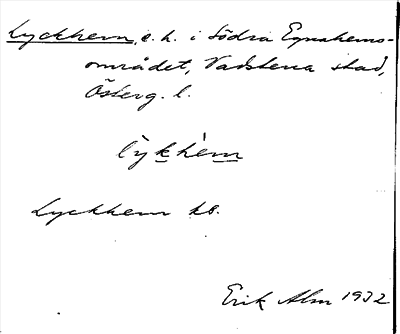 Lyckhem, e.h. i Södra Egnahems-
området, Vadstena stad,
Österg. l.
lỳkhèm
Lyckhem kb.
Erik Alm 1932